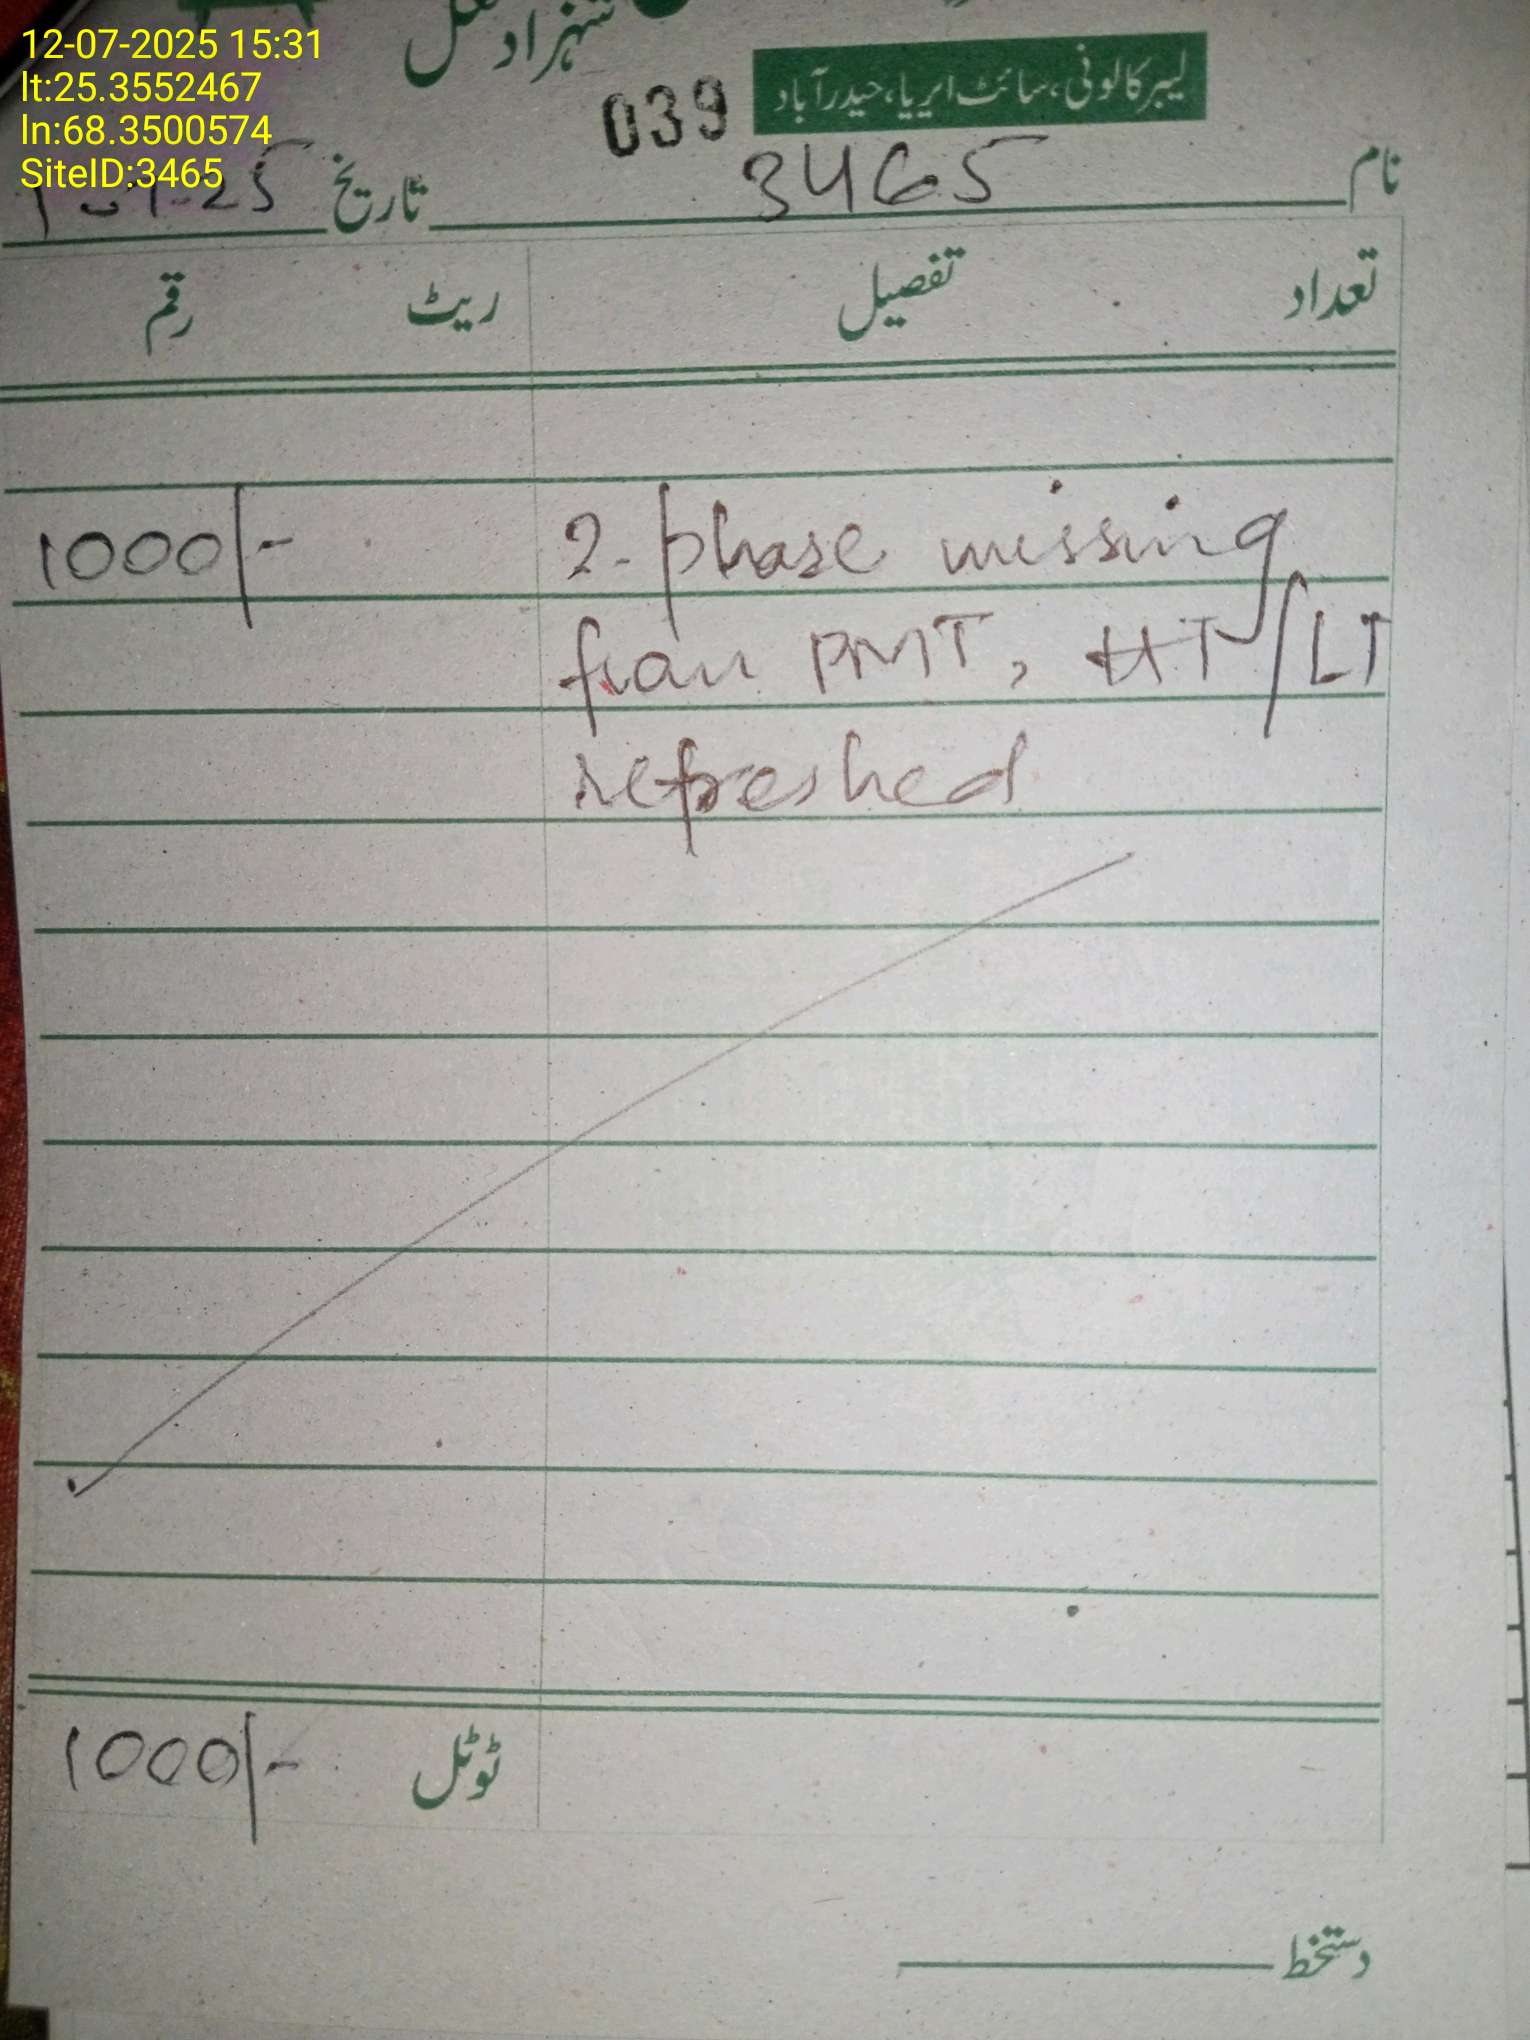 12-07-2025 15:31
lt:25.3552467
ln:68.3500574
SiteID:3465
شہزاد
لیبر کالونی، سائٹ ایریا، حیدرآباد
039
نام 3465 تاریخ
تعداد تفصیل ریٹ رقم
2-phase missing 1000/-
from PMT, HT/LT
refreshed
ٹوٹل 1000/-
دستخط